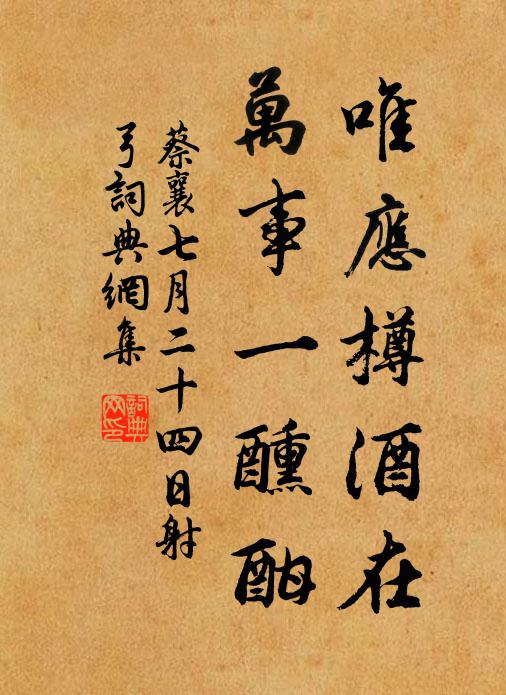 唯應樽酒在
萬事一醺酣
蔡襄七月二十四日射
弓詞典網集
詞典
网印